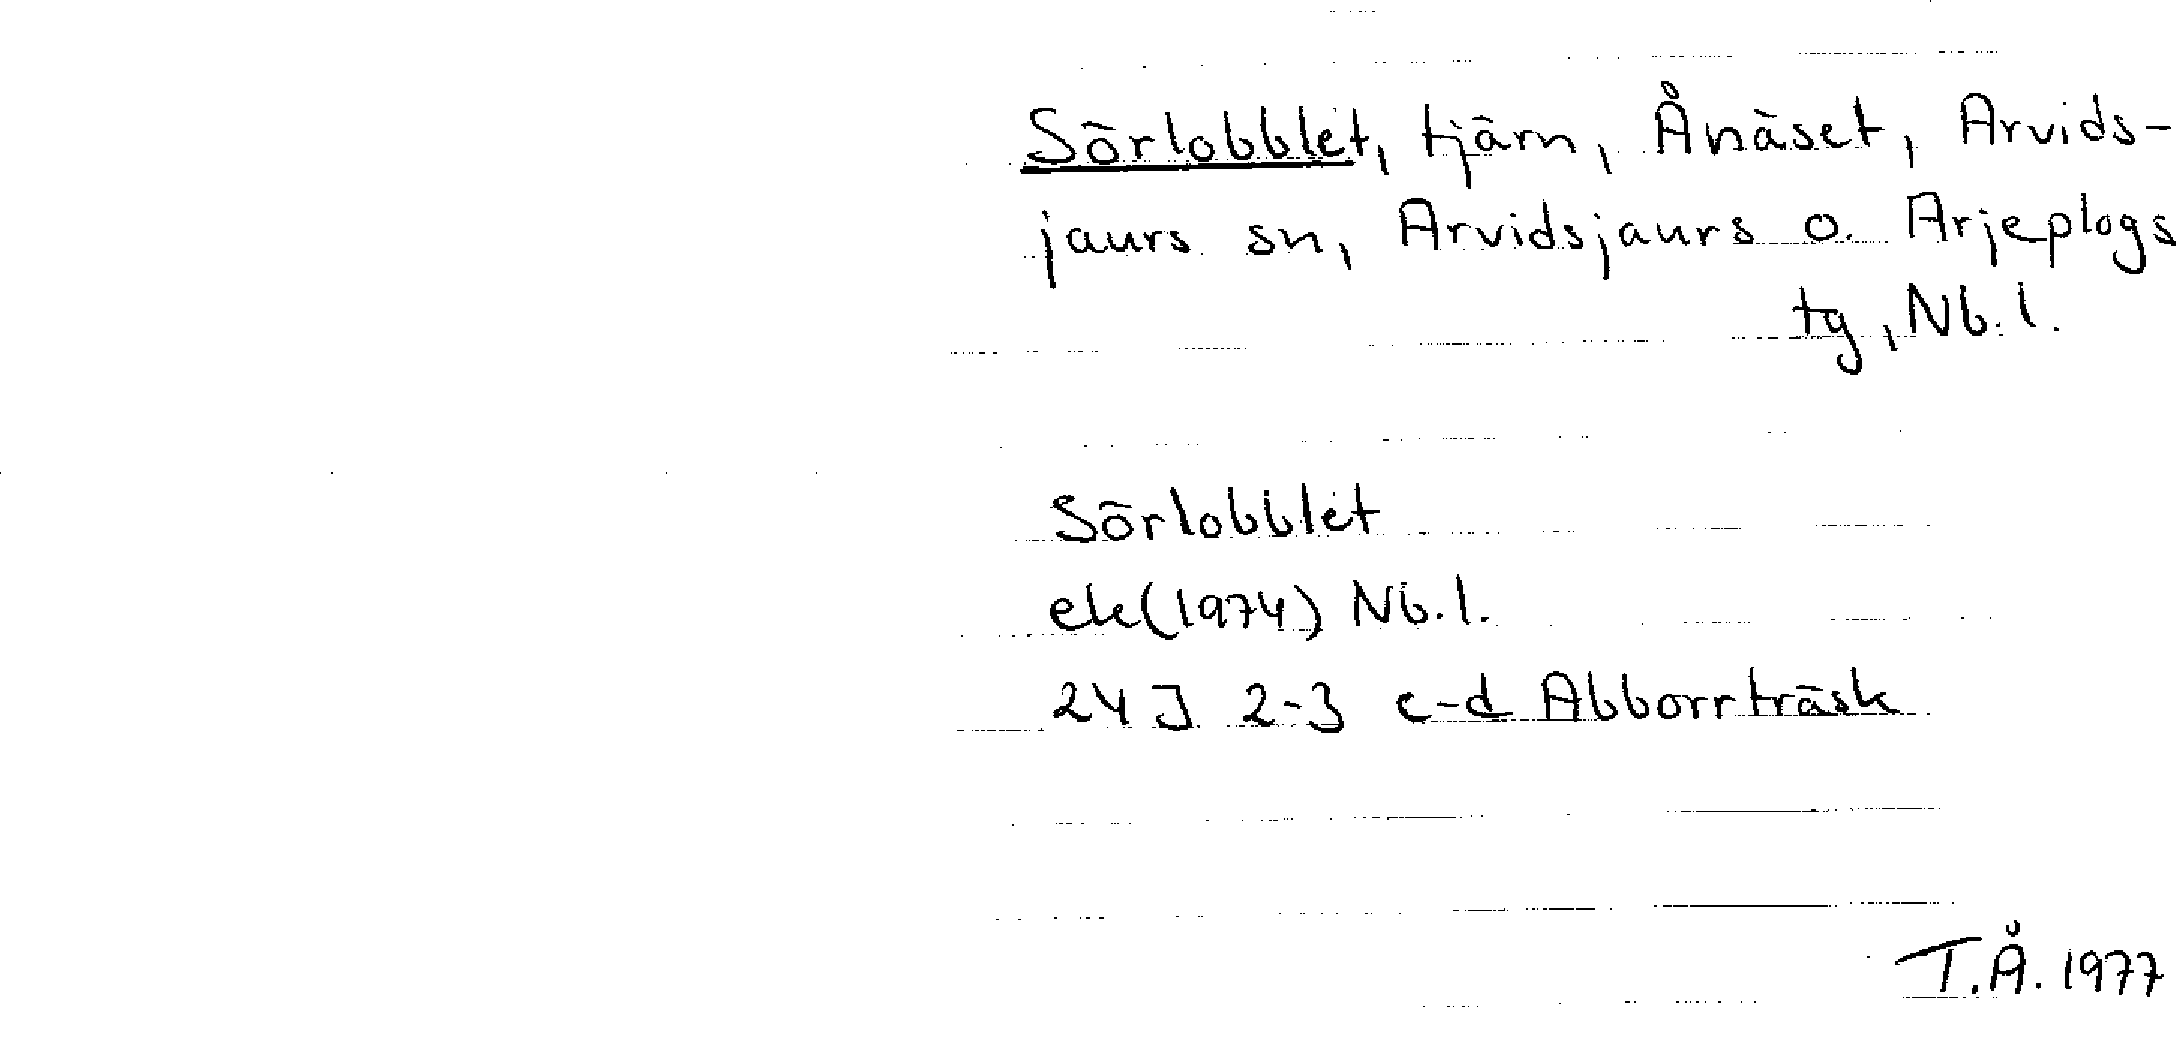 Sörlobblet, tjärn, Ånäset, Arvids-
jaurs sn, Arvidsjaurs o. Arjeplogs
tg, Nb.l.
Sörlobblet
ek(1974) Nb.l.
24J 2-3 c-d Abborrträsk
T.Å. 1977